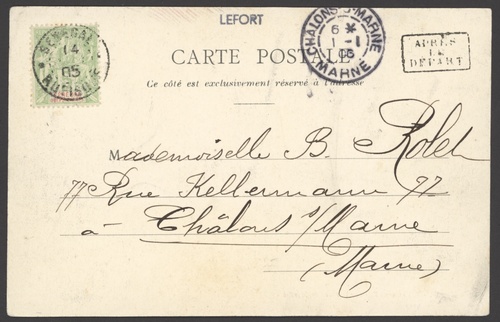 LEFORT
SENEGAL
14
05
RUFISQUE
CHALONS-S-MARNE
6 *
1 - 1
05
MARNE
APRÈS
LE
DÉPART
CARTE POSTALE
Ce côté est exclusivement réservé à l'adresse
Mademoiselle B. Rolet
77 Rue Kellermann 97
à Châlons s/Marne
(Marne)